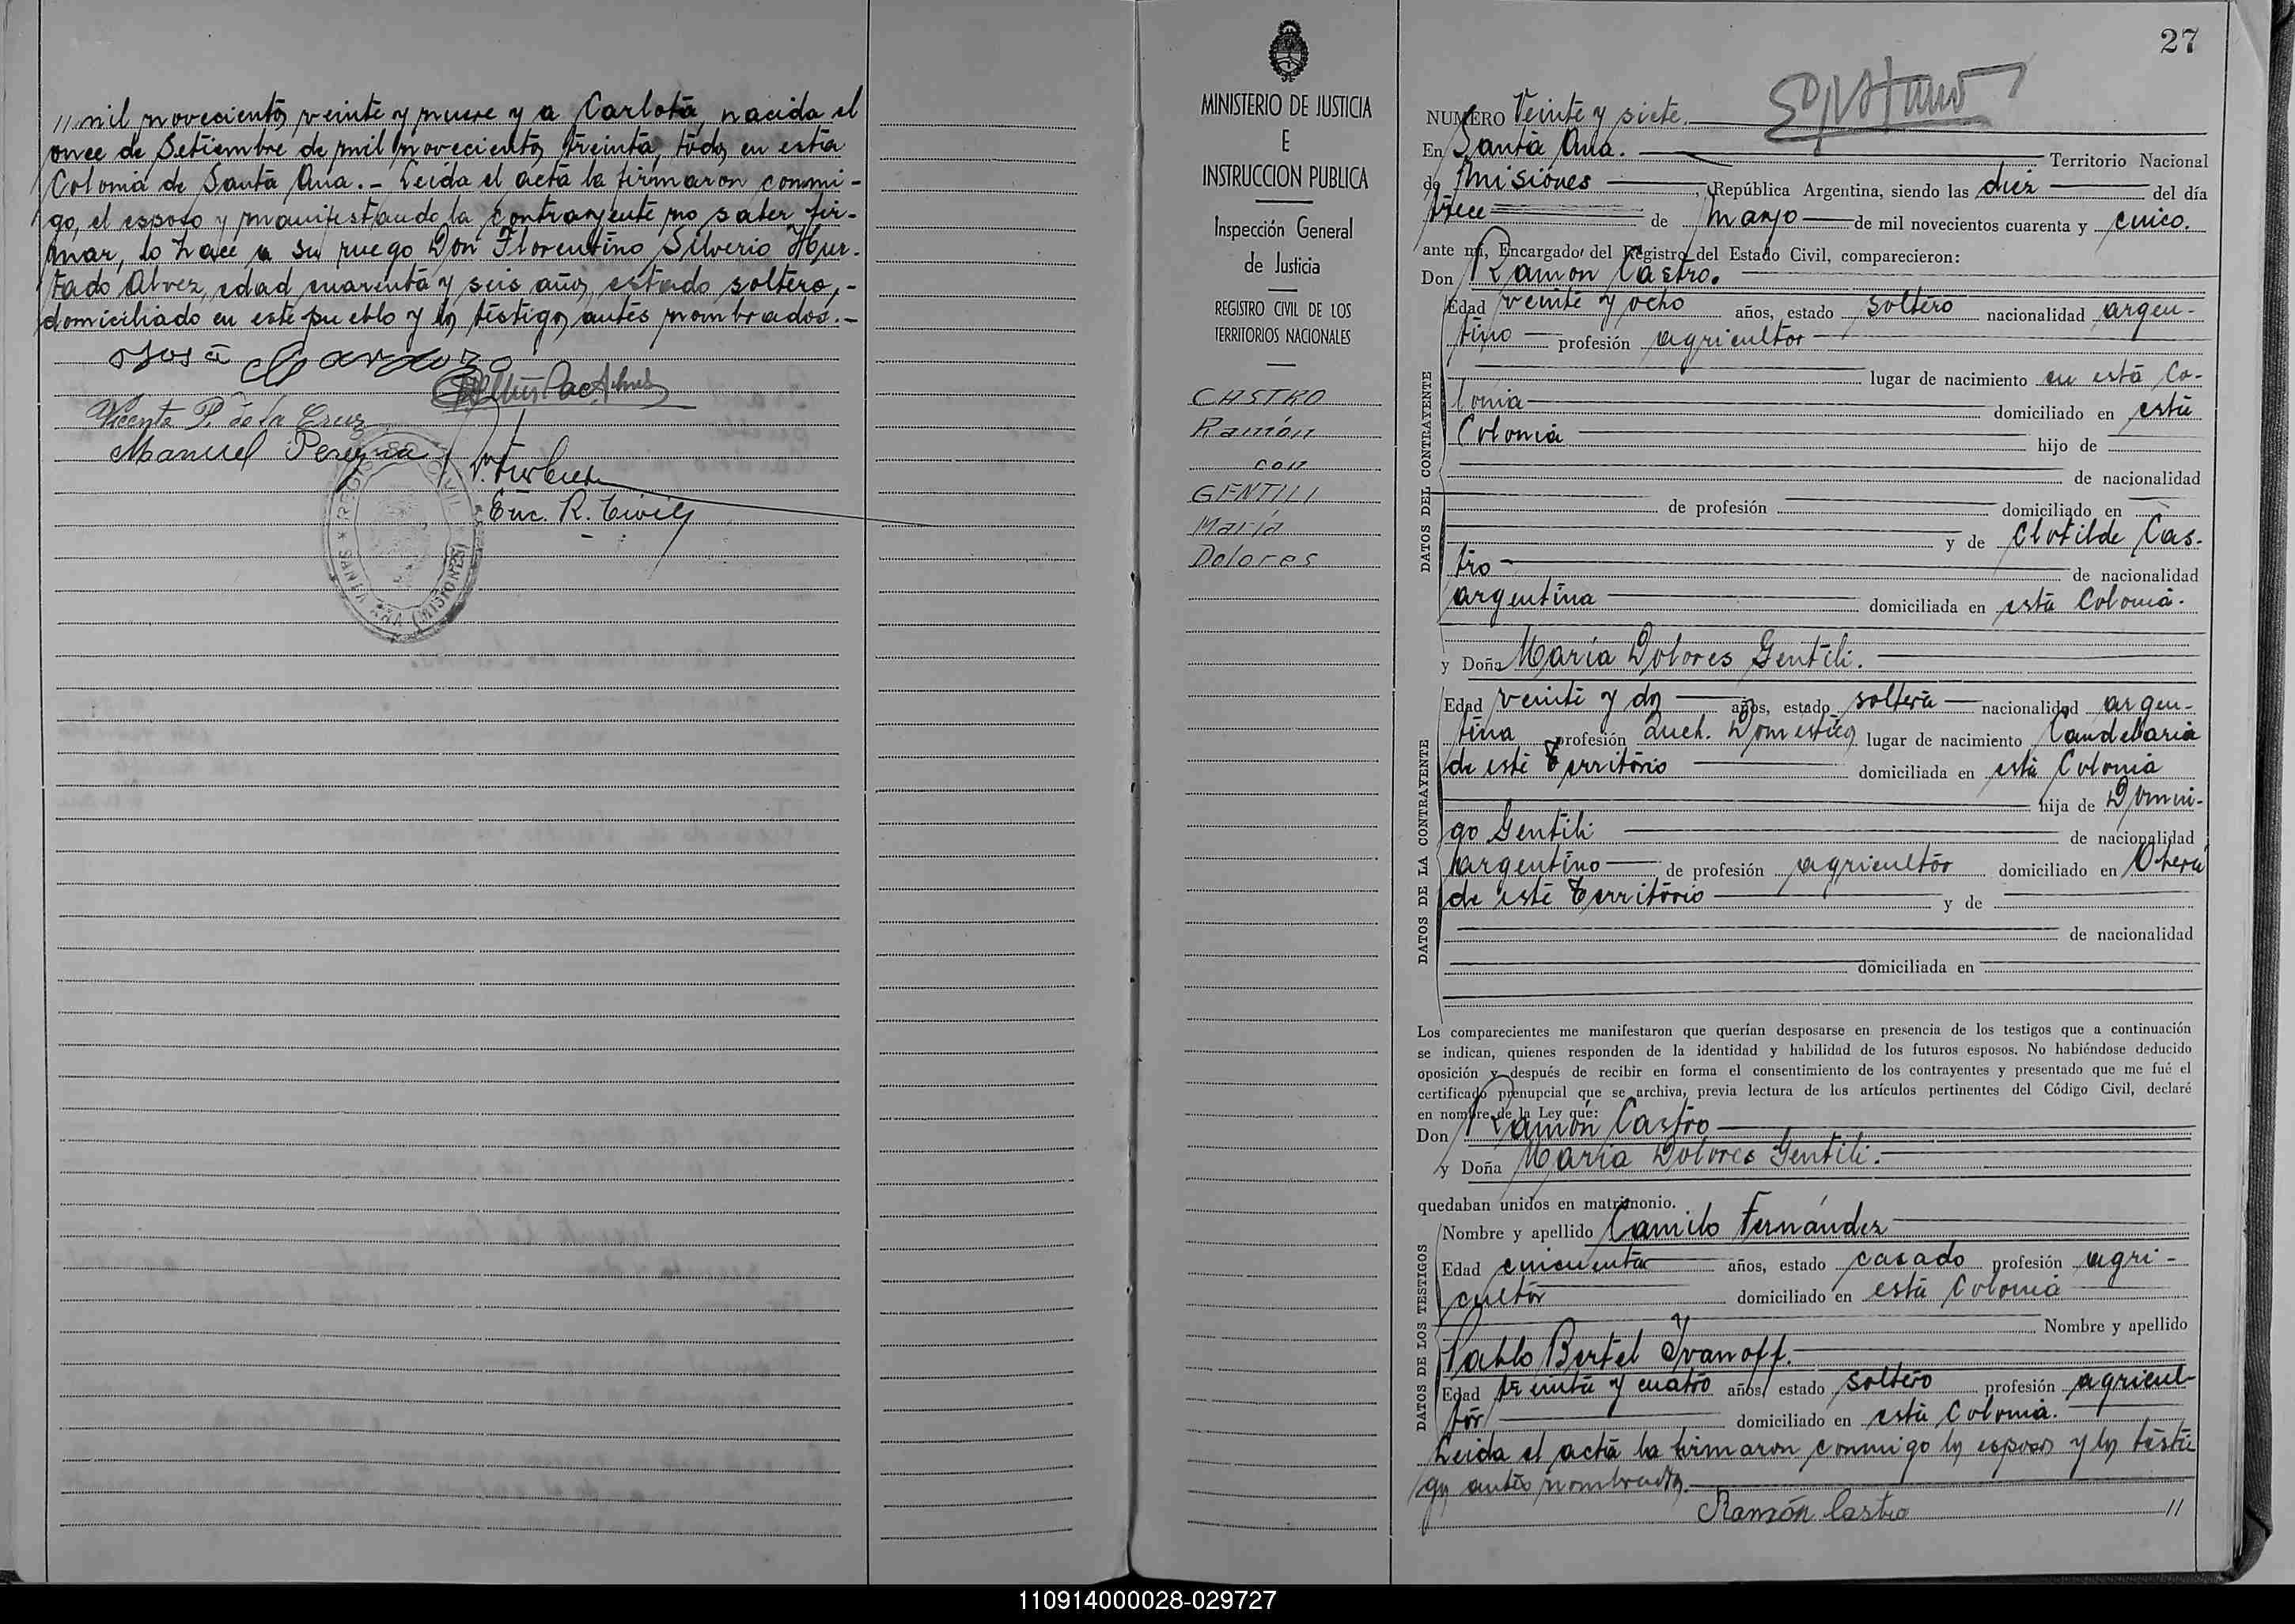 //mil novecientos veinte y nueve y a Carlota, nacida el
once de Setiembre de mil novecientos treinta, todos en esta
Colonia de Santa Ana.- Leida el acta la firmaron conmi-
go, el esposo y manifestando la contrayente no saber fir-
mar, lo hace a su ruego Don Florentino Silverio Hur-
tado Alvez, edad cuarenta y seis años, estado soltero,-
domiciliado en este pueblo y los testigos antes nombrados.-
José
Vicente P. de la Cruz
Manuel Pereyra
Enc. R. Civil
REGISTRO CIVIL
SANTA ANA (MISIONES)
MINISTERIO DE JUSTICIA
E
INSTRUCCION PUBLICA
Inspección General
de Justicia
REGISTRO CIVIL DE LOS
TERRITORIOS NACIONALES
CASTRO
Ramón
con
GENTILI
María
Dolores
27
NUMERO Veinte y siete.
En Santa Ana. Territorio Nacional
de Misiones, República Argentina, siendo las diez del día
trece de Marzo de mil novecientos cuarenta y cinco.
ante mí, Encargado del Registro del Estado Civil, comparecieron:
Don Ramón Castro.
DATOS DEL CONTRAYENTE
Edad veinte y ocho años, estado soltero nacionalidad argen-
tino profesión agricultor
lugar de nacimiento en esta Co-
lonia domiciliado en esta
Colonia hijo de
de nacionalidad
de profesión domiciliado en
y de Clotilde Cas-
tro de nacionalidad
argentina domiciliada en esta Colonia.
y Doña María Dolores Gentili.
DATOS DE LA CONTRAYENTE
Edad veinte y dos años, estado soltera nacionalidad argen-
tina profesión Queh. Domésticos lugar de nacimiento Candelaria
de este Territorio domiciliada en esta Colonia
hija de Domin-
go Gentili de nacionalidad
argentino de profesión agricultor domiciliado en Oberá
de este Territorio y de
de nacionalidad
domiciliada en
Los comparecientes me manifestaron que querían desposarse en presencia de los testigos que a continuación
se indican, quienes responden de la identidad y habilidad de los futuros esposos. No habiéndose deducido
oposición y después de recibir en forma el consentimiento de los contrayentes y presentado que me fué el
certificado prenupcial que se archiva, previa lectura de los artículos pertinentes del Código Civil, declaré
en nombre de la Ley que:
Don Ramón Castro
y Doña María Dolores Gentili.
quedaban unidos en matrimonio.
DATOS DE LOS TESTIGOS
Nombre y apellido Camilo Fernández
Edad cincuenta años, estado casado profesión agri-
cultor domiciliado en esta Colonia
y Nombre y apellido
Pablo Bertel Ivanoff.
Edad treinta y cuatro años, estado soltero profesión agricul-
tor domiciliado en esta Colonia.
Leida el acta la firmaron conmigo los esposos y los testi
gos antes nombrados.
Ramón Castro //
110914000028-029727